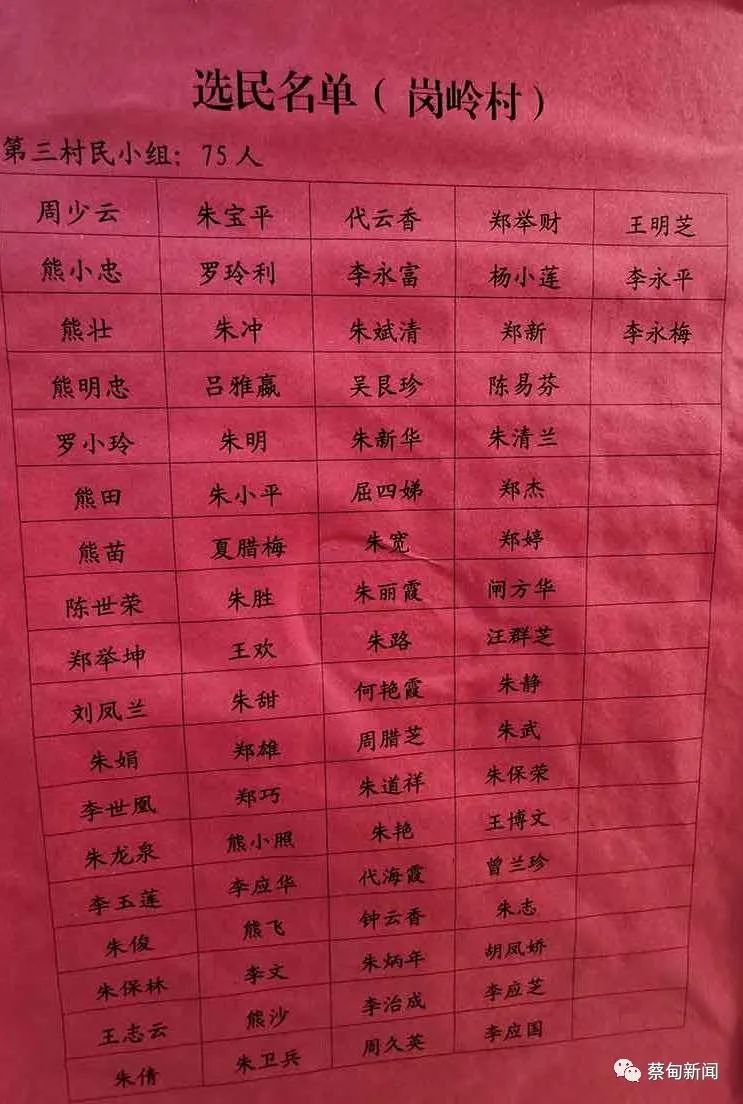 选民名单（岗岭村）
第三村民小组：75人
周少云 朱宝平 代云香 郑举财 王明芝
熊小忠 罗玲利 李永富 杨小莲 李永平
熊壮 朱冲 朱斌清 郑新 李永梅
熊明忠 吕雅嬴 吴艮珍 陈易芬
罗小玲 朱明 朱新华 朱清兰
熊田 朱小平 屈四娣 郑杰
熊苗 夏腊梅 朱宽 郑婷
陈世荣 朱胜 朱丽霞 闸方华
郑举坤 王欢 朱路 汪群芝
刘凤兰 朱甜 何艳霞 朱静
朱娟 郑雄 周腊芝 朱武
李世凰 郑巧 朱道祥 朱保荣
朱龙泉 熊小照 朱艳 王博文
李玉莲 李应华 代海霞 曾兰珍
朱俊 熊飞 钟云香 朱志
朱保林 李文 朱炳年 胡凤娇
王志云 熊沙 李治成 李应芝
朱倩 朱卫兵 周久英 李应国
蔡甸新闻